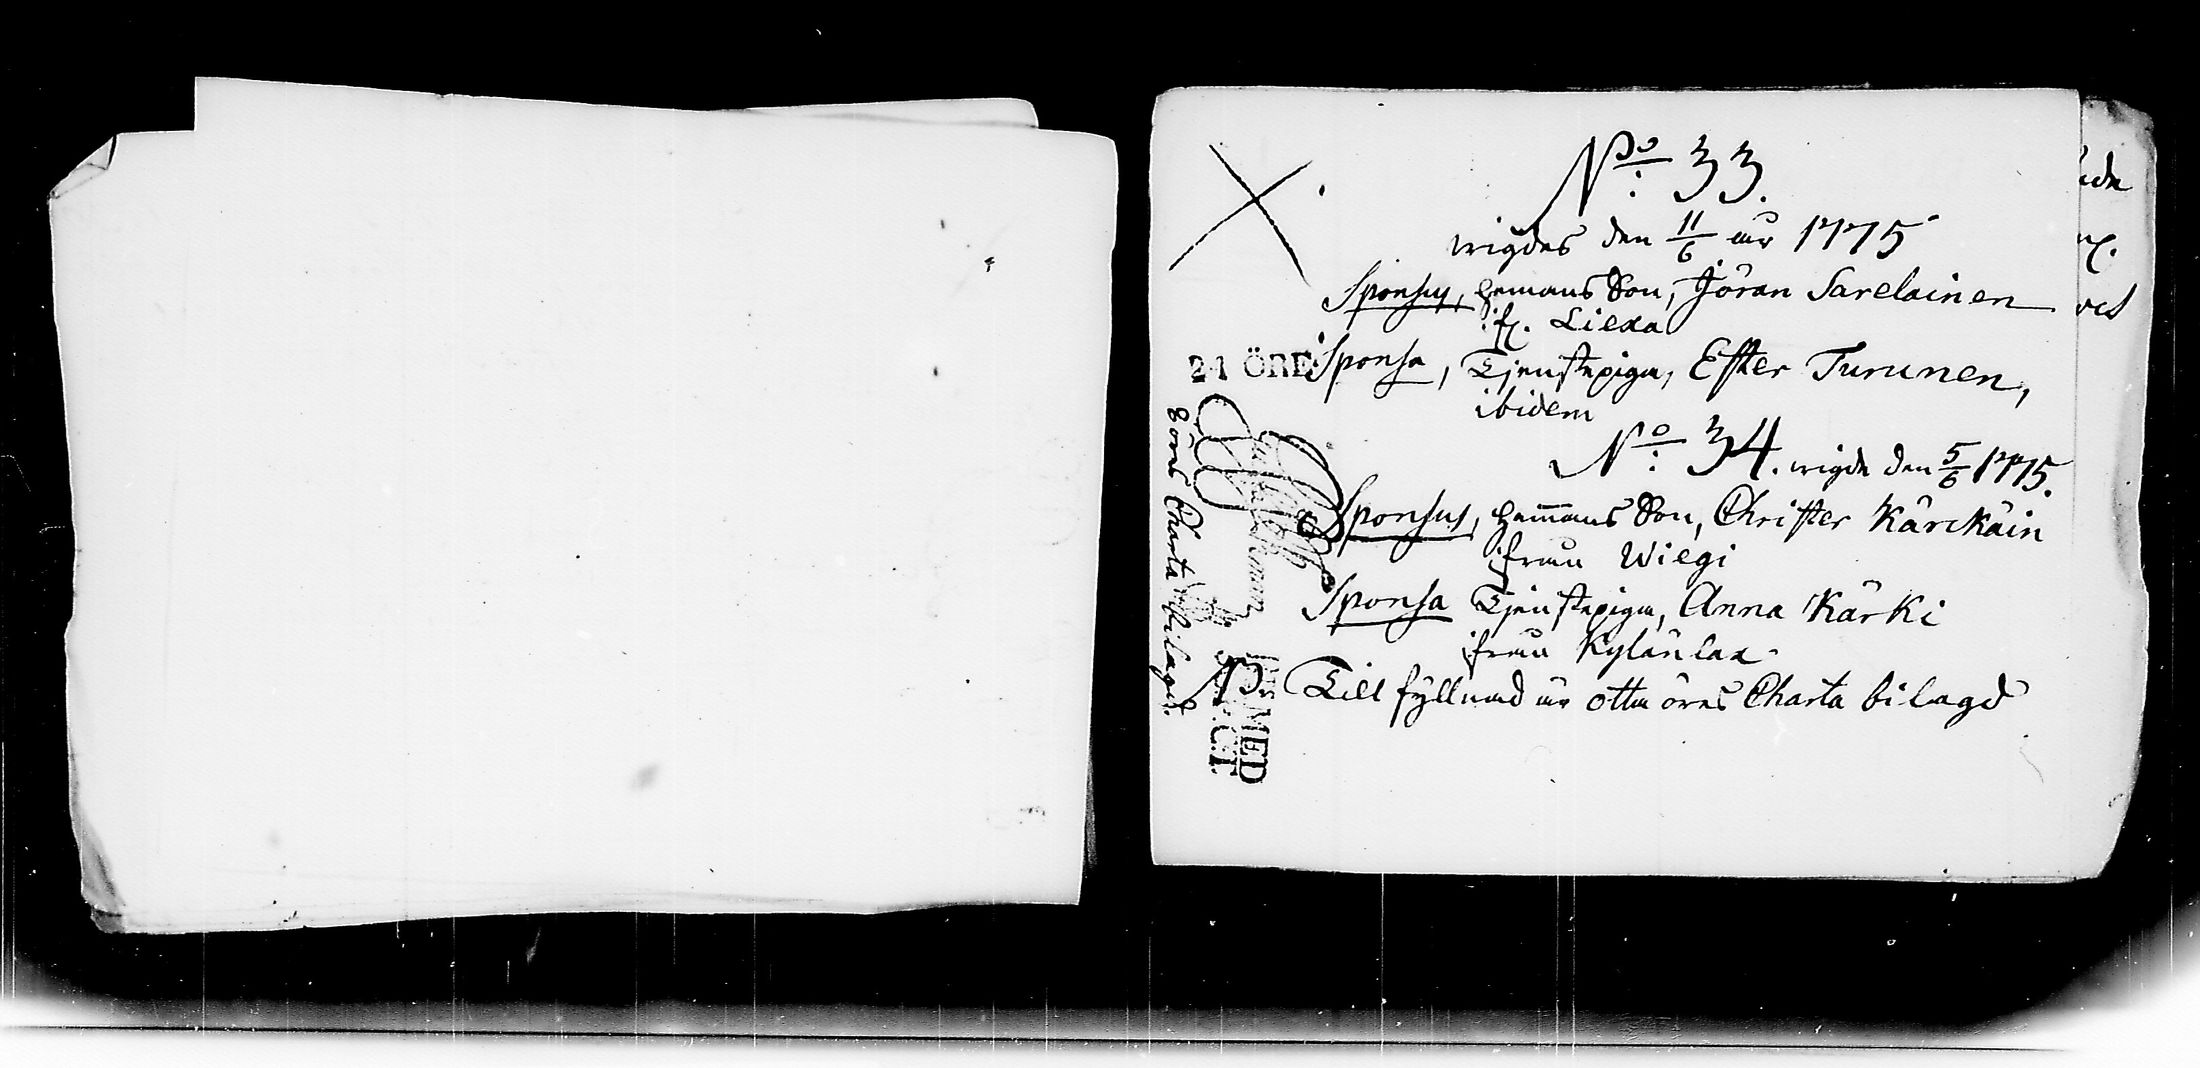 No: 33.
wigdes den 11/6 år 1775
Sponsus, Hemans Son, Jöran Sarelainen
ifr. Liexa
Sponsa, Tjenstepiga, Ester Turunen,
ibidem
No: 34. wigde den 5/6 1775.
Sponsus, Hem̅ans Son, Christer Kärckäin
ifrån Wiegi
Sponsa Tjenstepiga, Anna Kärki
ifrån Kylänlax
Till fyllnad är otta öres Charta bilagd
24 ÖRE
8 öres Charta bilagd.
MED